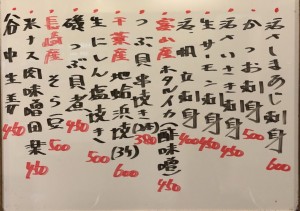 活さしまあじ刺身
かつお刺身 500
活いさき刺身 450
生サーモン刺身 400
活帆立刺身 400
富山産ホタルイカ酢味噌 450
つぶ貝串焼き(2本) 380
千葉産地蛤浜焼(3ケ) 600
生にしん塩焼き 500
磯つぶ貝煮 450
長崎産そら豆 500
米ナス肉味噌田楽 450
谷中生姜 450